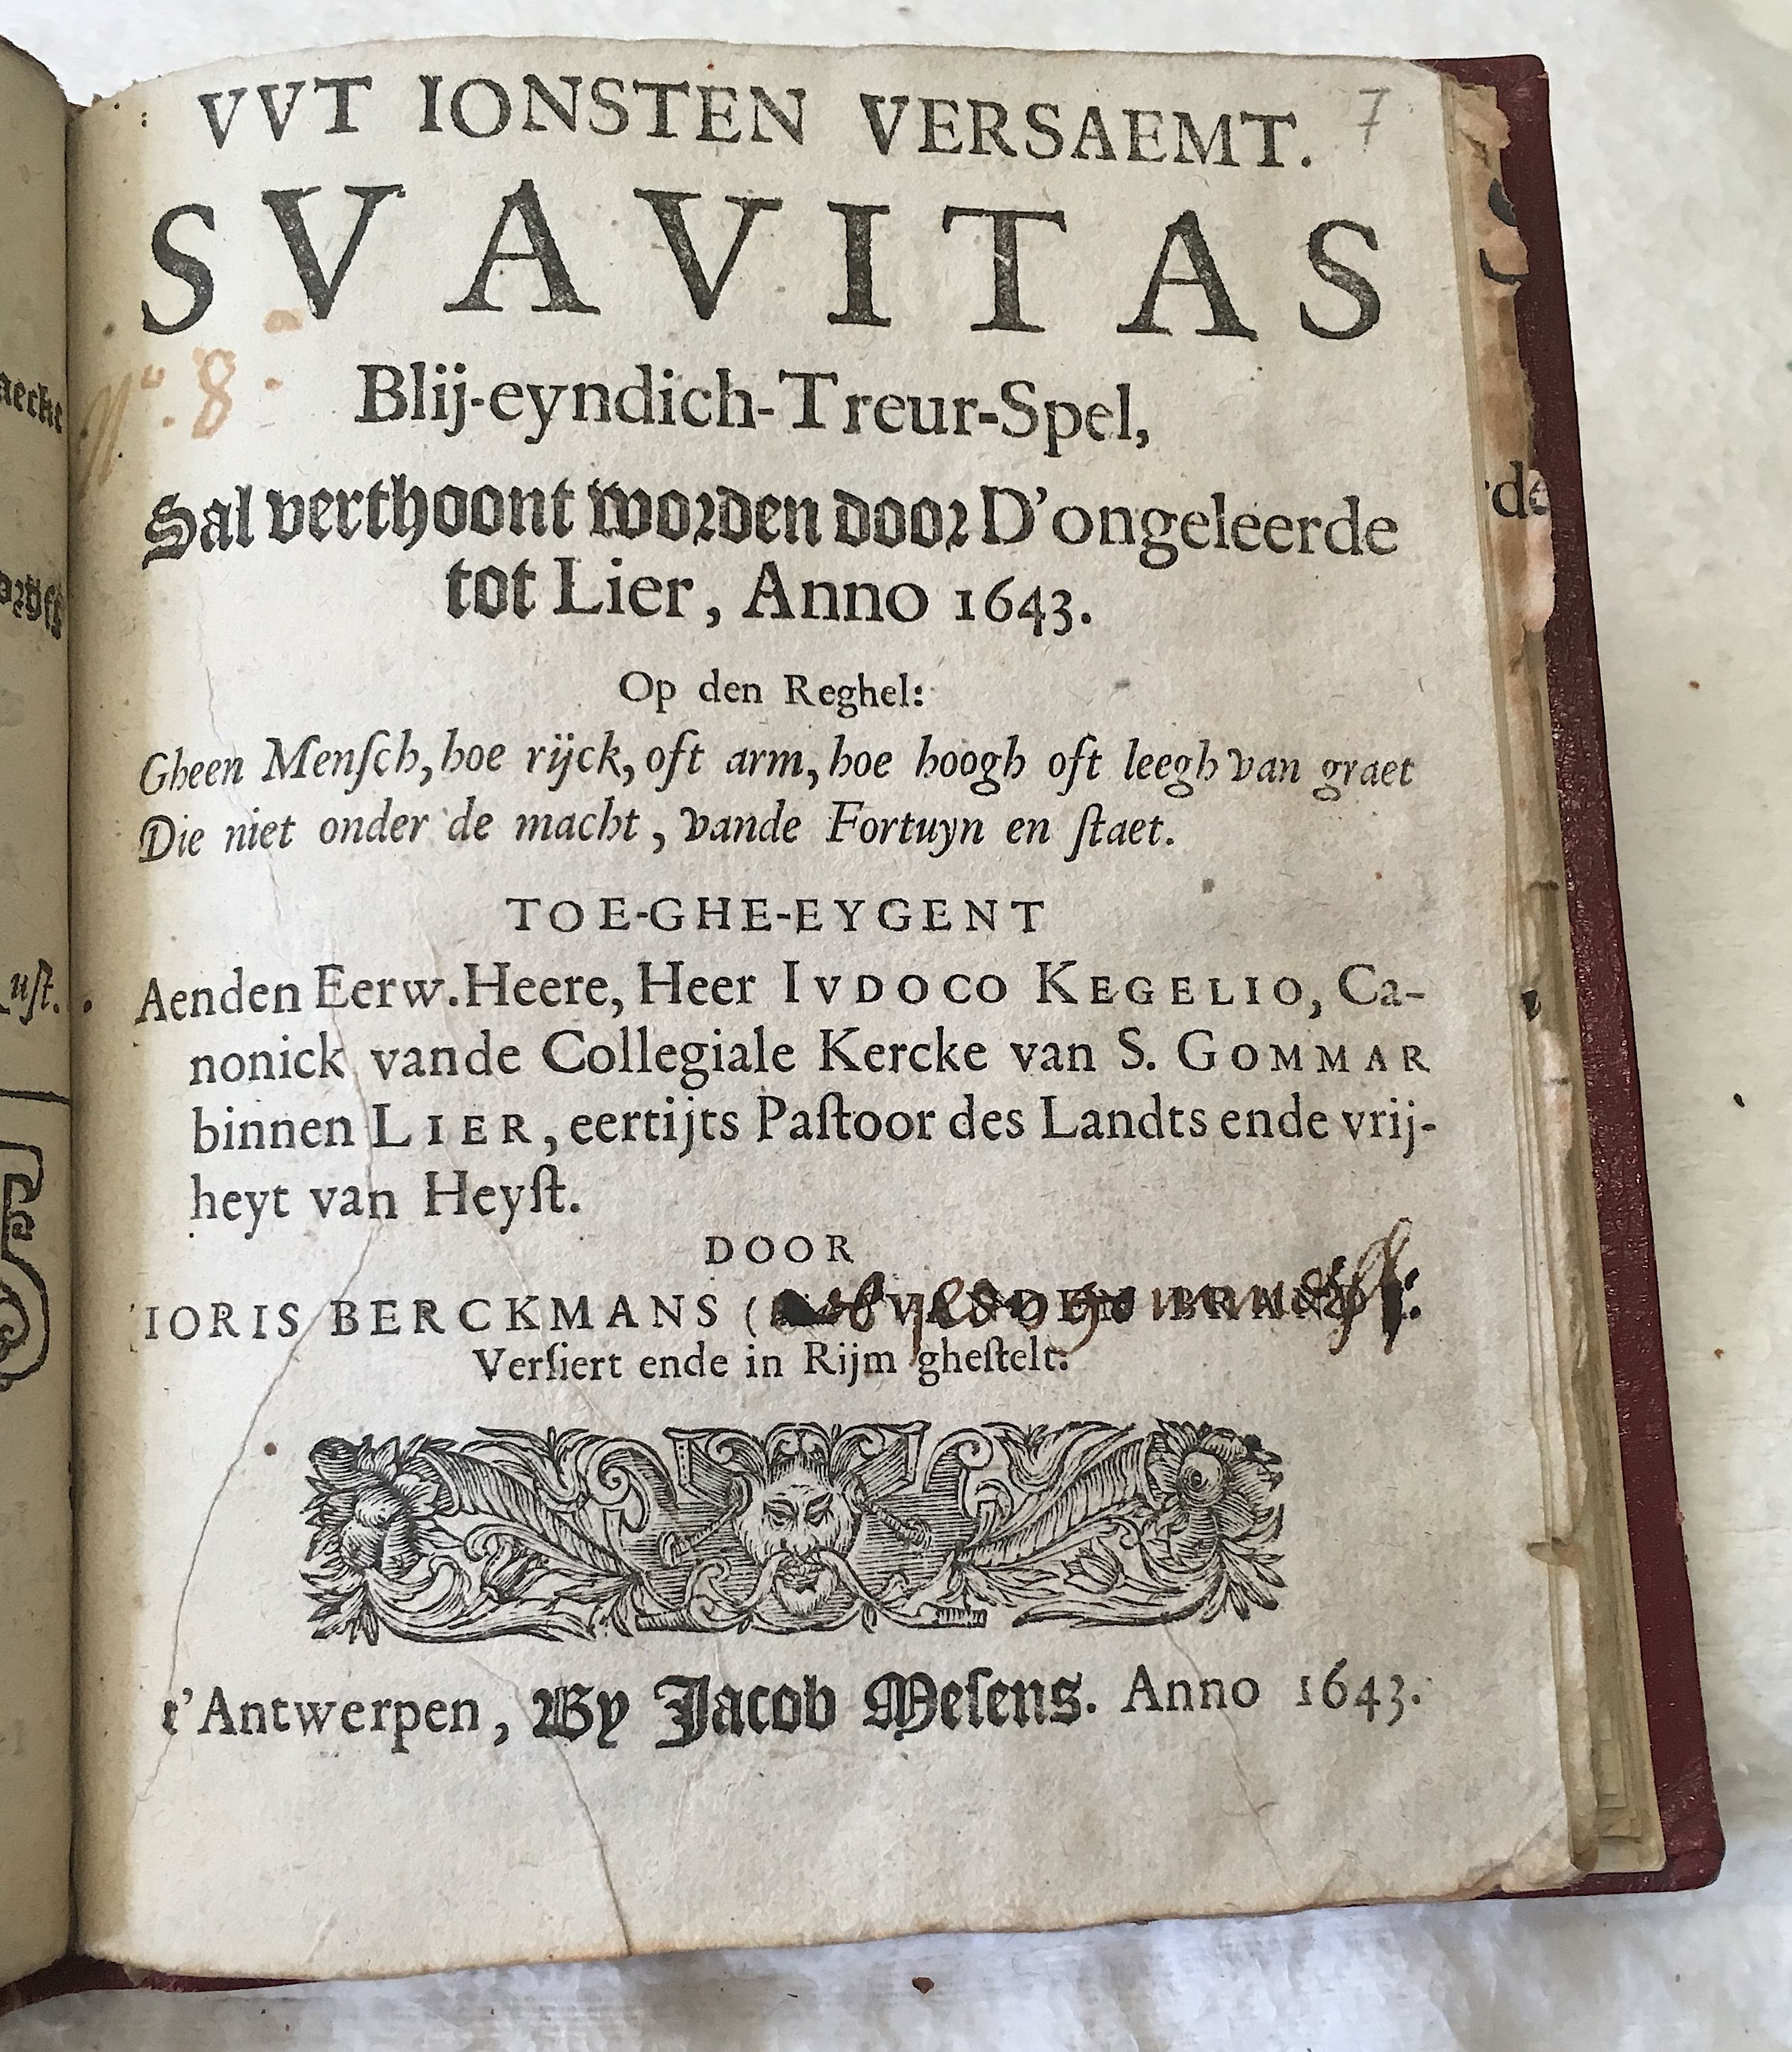 VVT IONSTEN VERSAEMT. 7
SVAVITAS
Nº. 8.
Blij-eyndich-Treur-Spel,
Sal verthoont worden door D'ongeleerde
tot Lier, Anno 1643.
Op den Reghel:
Gheen Menſch, hoe rijck, oft arm, hoe hoogh oft leegh van graet
Die niet onder de macht, vande Fortuyn en ſtaet.
TOE-GHE-EYGENT
Aenden Eerw. Heere, Heer IVDOCO KEGELIO, Ca-
nonick vande Collegiale Kercke van S. GOMMAR
binnen LIER, eertijts Paſtoor des Landts ende vrij-
heyt van Heyſt.
DOOR
IORIS BERCKMANS (
Verſiert ende in Rijm gheſtelt.
t'Antwerpen, By Jacob Meſens. Anno 1643.
aecke
uſt.
de